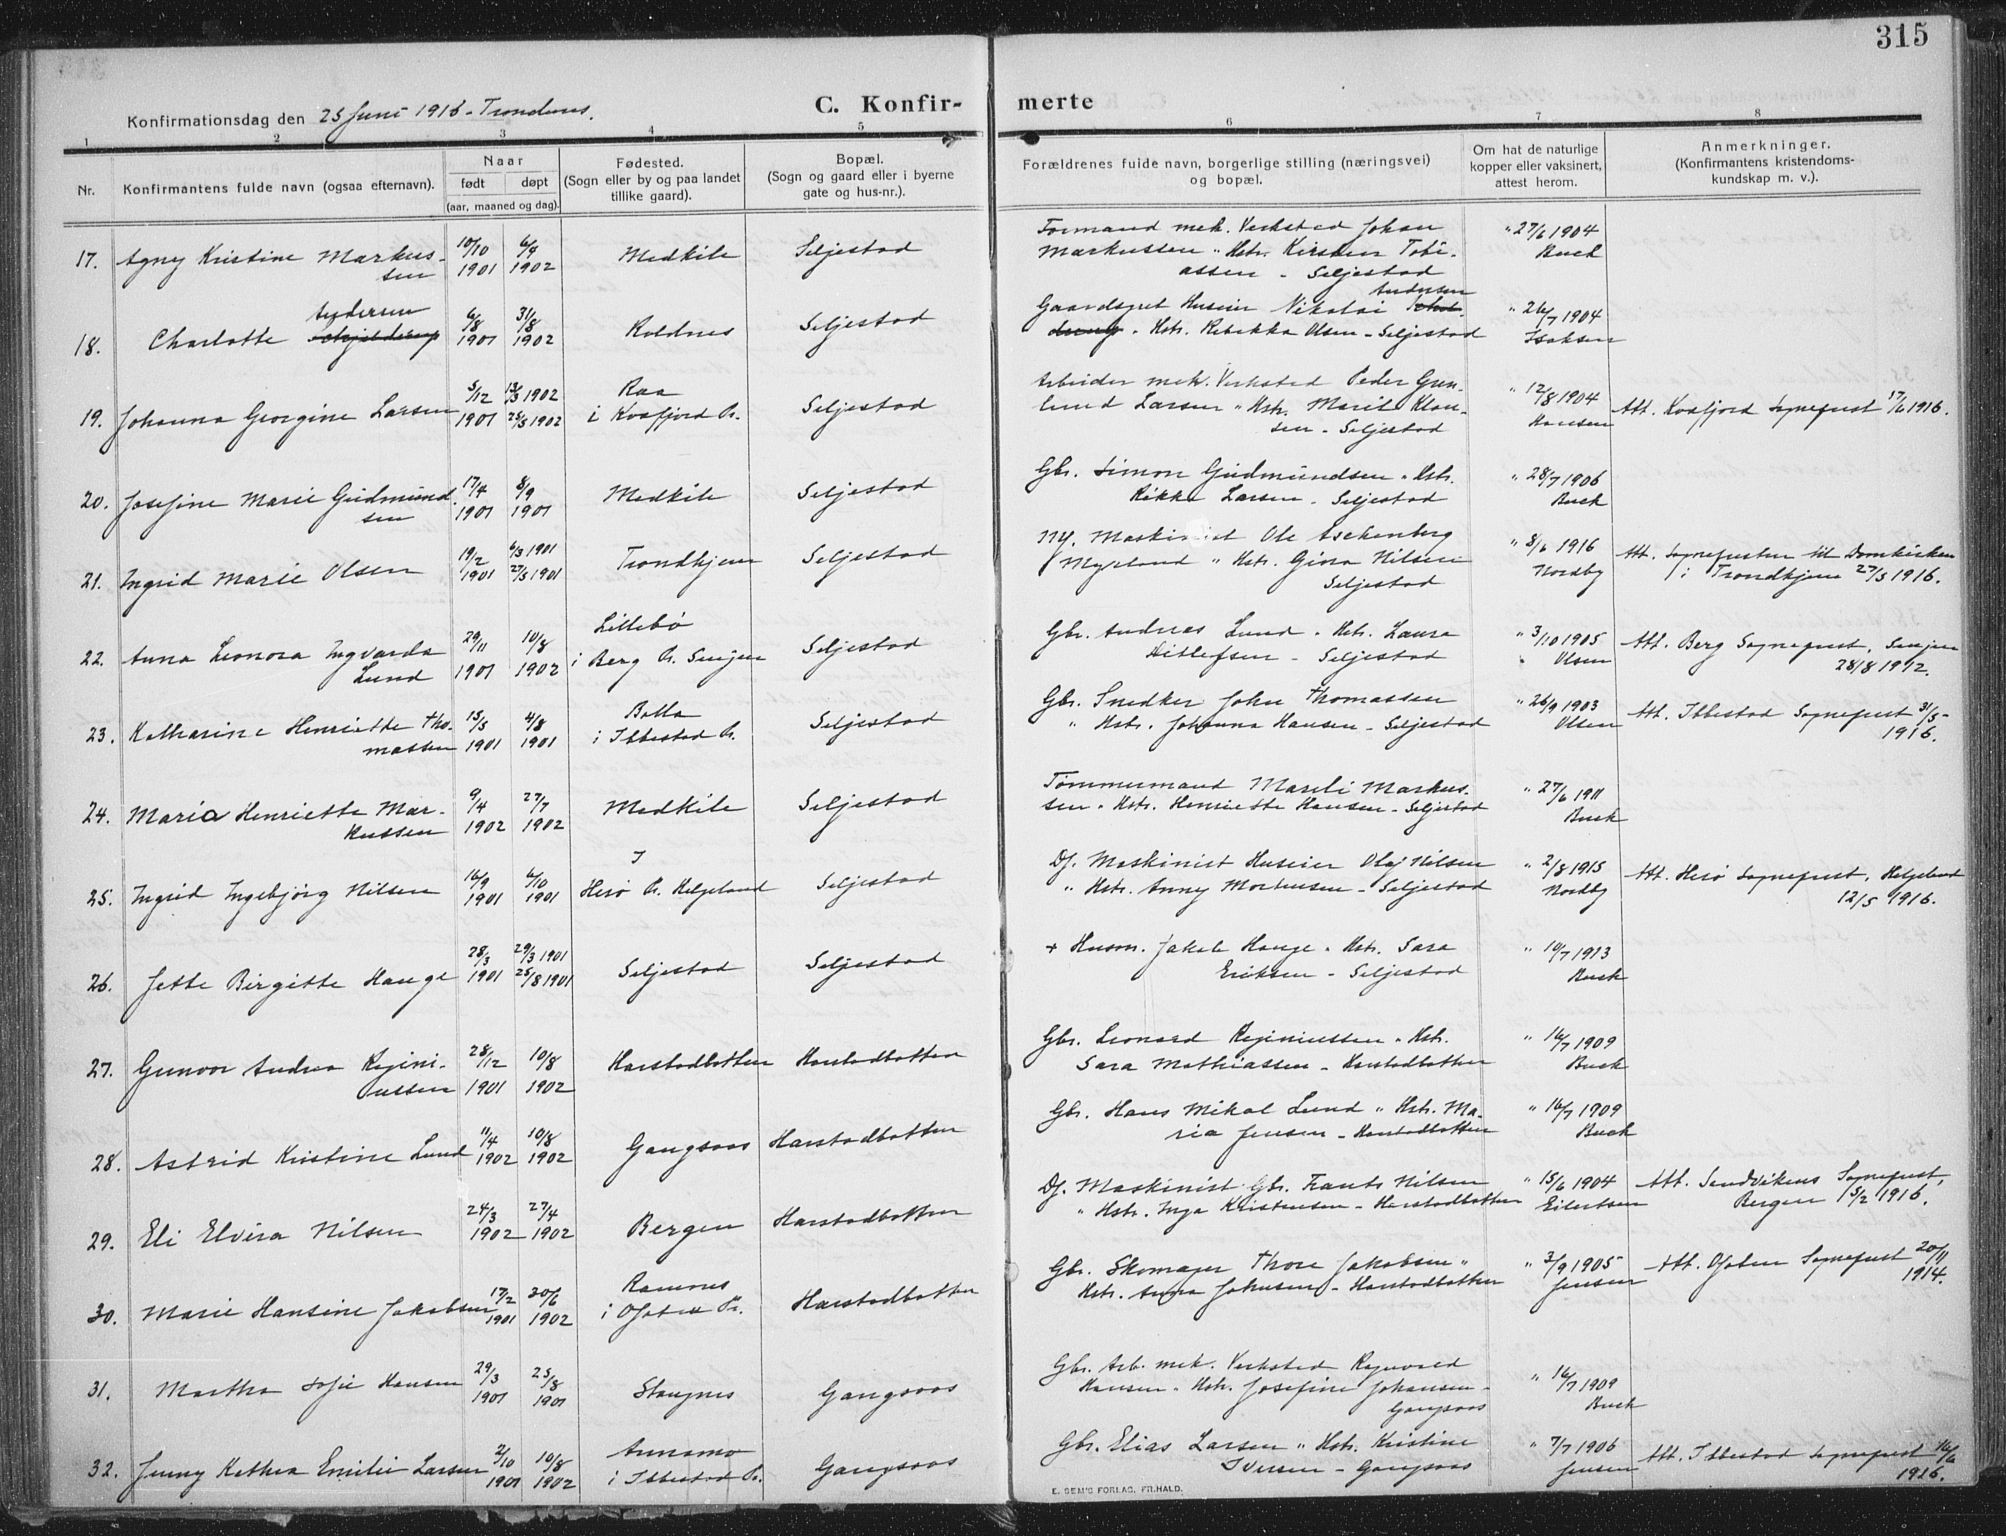 315
Konfirmationsdag den 25 Juni 1916 - Trondenes.
C. Konfir-
merte
1 2 3 4 5 6 7 8
Nr.
Konfirmantens fulde navn (ogsaa efternavn).
Naar
født
døpt
(aar, maaned og dag).
Fødested.
(Sogn eller by og paa landet
tillike gaard).
Bopæl.
(Sogn og gaard eller i byerne
gate og hus-nr.).
Forældrenes fulde navn, borgerlige stilling (næringsvei)
og bopæl.
Om hat de naturlige
kopper eller vaksinert,
attest herom.
Anmerkninger.
(Konfirmantens kristendoms-
kundskap m. v.).
17. Agny Kristine Markus-
sen
10/10 1901
6/4 1902
Medkile
Seljestad
Formand mek. Verksted Johan
Markussen " Hstr. Kirsten Tobi-
assen - Seljestad
" 27/6 1904
Buck
18. Charlotte Andersen
6/8 1901
31/8 1902
Roldnes
Seljestad
Gaardsgut Huseier Nikolai Andersen
" Hstr. Rebekka Olsen - Seljestad
" 26/7 1904
Isaksen
19. Johanna Georgine Larsen
5/12 1901
13/3 1902
25/5 1902
Raa
i Kvæfjord Pr.
Seljestad
Arbeider mek. Verksted Peder Gun-
lund Larsen " Hstr. Marit Klau-
sen - Seljestad
" 12/8 1904
Hansen
Att. Kvæfjord Sogneprest 17/6 1916.
20. Josefine Marie Gudmund
sen
17/4 1901
8/9 1901
Medkile
Seljestad
Gbr. Simon Gudmundsen " Hstr.
Rikka Larsen - Seljestad
" 28/7 1906
Buck
21. Ingrid Marie Olsen
19/2 1901
6/3 1901
27/5 1901
Trondhjem
Seljestad
Ny. Maskinist Ole Aschenberg
Myrland " Hstr. Gina Nilsen
Seljestad
" 8/6 1916
Nordby
Att. Sognepresten til Domkirken
i Trondhjem 27/5 1916.
22. Anna Leonora Ingvarda
Lund
29/11 1901
10/8 1902
Lillebø
i Berg Pr. Senjen
Seljestad
Gbr. Andreas Lund " Hstr. Laura
Ditlefsen - Seljestad
" 3/10 1905
Olsen
Att. Berg Sogneprest, Senjen
28/8 1912.
23. Katharine Henriette Tho-
massen
15/5 1901
4/8 1901
Bolla
i Ibbestad Pr.
Seljestad
Gbr. Snedker John Thomassen
" Hstr. Johanna Hansen - Seljestad
" 26/9 1903
Olsen
Att. Ibbestad Sogneprest 31/5-
1916.
24. Maria Henriette Mar-
kussen
9/4 1902
27/7 1902
Medkile
Seljestad
Tømmermand Mareli Markus-
sen " Hstr. Henriette Hansen - Seljestad
" 27/6 1911
Buck
25. Ingrid Ingebjörg Nilsen
16/9 1901
6/10 1901
I
Herø Pr. Helgeland
Seljestad
Df. Maskinist Huseier Olaf Nilsen
" Hstr. Anny Mortensen - Seljestad
" 2/8 1915
Nordby
Att. Herø Sogneprest, Helgeland
12/5 1916.
26. Jette Birgitte Hauge
28/3 1901
29/3 1901
25/8 1901
Seljestad
Seljestad
+ Husm. Jakob Hauge " Hstr. Sara
Eriksen - Seljestad
" 10/7 1913
Buck
27. Gunvor Andrea Regini-
ussen
28/12 1901
10/8 1902
Harstadbotten
Harstadbotten
Gbr. Leonard Reginiussen " Hstr.
Sara Mathiassen - Harstadbotten
" 16/7 1909
Buck
28. Astrid Kristine Lund
11/4 1902
10/8 1902
Gangsaas
Harstadbotten
Gbr. Hans Mikal Lund " Hstr. Ma-
ria Jensen - Harstadbotten
" 16/7 1909
Buck
29. Eli Elvira Nilsen
24/3 1902
27/4 1902
Bergen
Harstadbotten
Df. Maskinist Gbr. Frants Nilsen
" Hstr. Inga Kristensen - Harstadbotten
" 15/6 1904
Eilertsen
Att. Sandvikens Sogneprest,
Bergen 15/2 1916.
30. Marie Hansine Jakobsen
17/2 1901
20/6 1902
Ramnes
i Ofoten Pr.
Harstadbotten
Gbr. Skomager Thore Jakobsen "
Hstr. Anna Johnsen - Harstadbotten
" 3/9 1905
Jensen
Att. Ofoten Sogneprest 20/11
1914.
31. Martha Sofie Hansen
29/3 1901
25/8 1901
Stangnes
Gangsaas
Gbr. Arb. mek. Verksted Ragnvald
Hansen " Hstr. Josefine Johansen -
Gangsaas
" 16/7 1909
Buck
32. Jenny Kathea Emilie Larsen
2/10 1901
10/8 1902
Annamo
i Ibbestad Pr.
Gangsaas
Gbr. Elias Larsen " Hstr. Kristine
Iversen - Gangsaas
" 7/7 1906
Jensen
Att. Ibbestad Sogneprest 16/6
1916.
E. SEM'S FORLAG, FR.HALD.